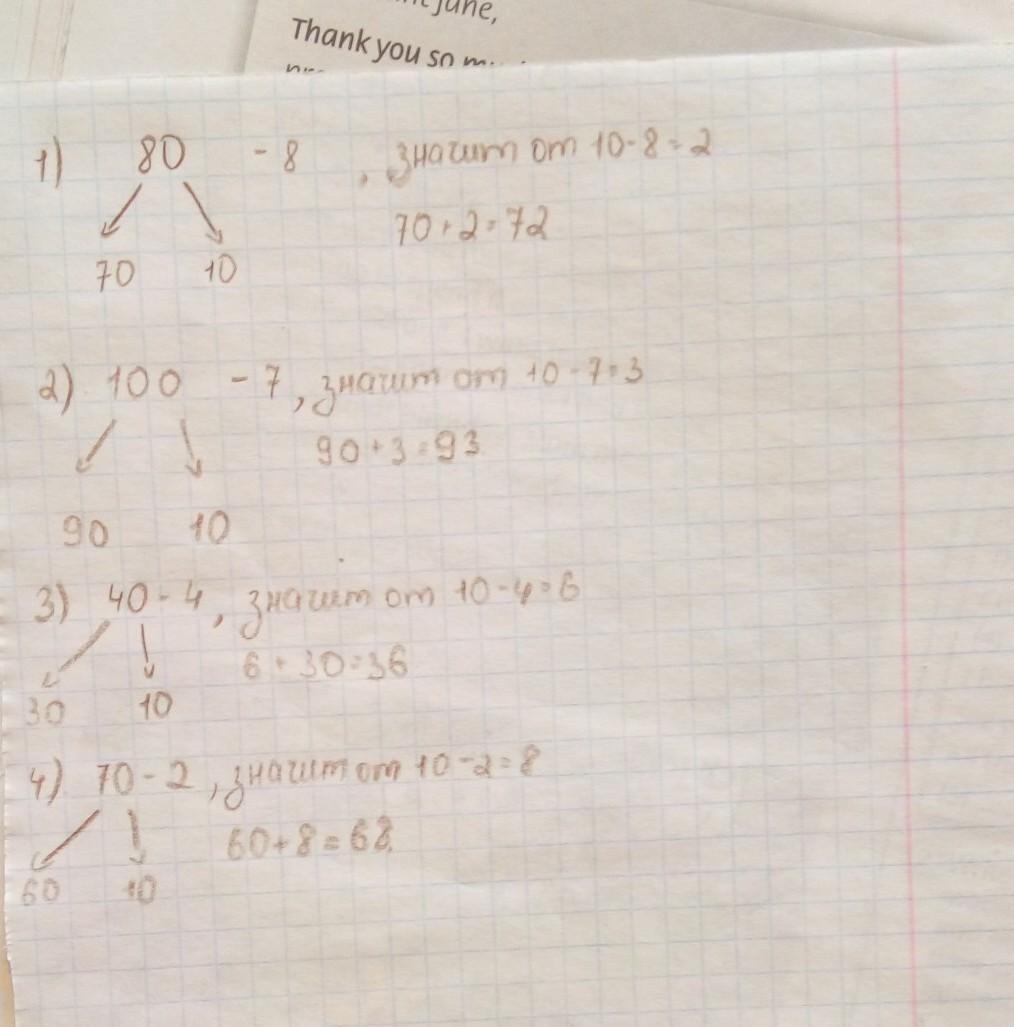 June,
Thank you so
1) 80 - 8 , значит от 10-8=2
70+2=72
70 10
2) 100 - 7, значит от 10-7=3
90+3=93
90 10
3) 40-4, значит от 10-4=6
6+30=36
30 10
4) 70-2, значит от 10-2=8
60+8=68.
60 10